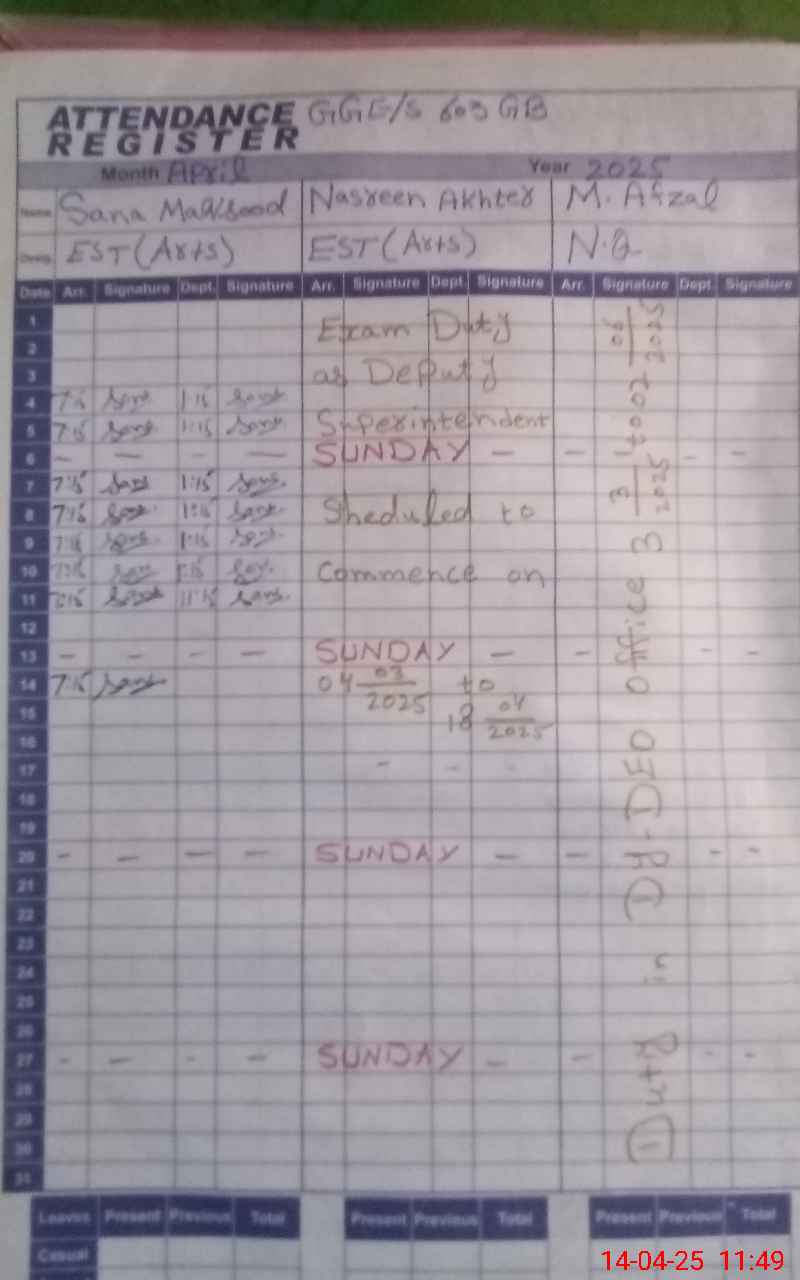 ATTENDANCE REGISTER GGE/S 603 GB
Month April Year 2025
Name Sana Maksood Nasreen Akhter M. Afzal
Desig. EST (Arts) EST (Arts) N.Q
Date Arr. Signature Dept. Signature Arr. Signature Dept. Signature Arr. Signature Dept. Signature
1 Exam Duty
2
3 as Deputy
4 7:15 Sana 1:15 Sana
5 7:15 Sana 1:15 Sana Superintendent
6 — — - — SUNDAY — — - -
7 7:15 Sana 1:15 Sana
8 7:15 Sana 1:15 Sana Sheduled to
9 7:15 Sana 1:15 Sana
10 7:15 Sana 1:15 Sana Commence on
11 7:15 Sana 11:15 Sana
12
13 — - — — SUNDAY — — - -
14 7:15 Sana 04 03/2025 to
15 18 04/2025
16
17 - -
18
19
20 - — — — SUNDAY — — - -
21
22
23
24
25
26
27 - — - — SUNDAY — — - -
28
29
30
31
Duty in Dy. DEO Office 3 3/2025 to 02 06/2025
Leaves Present Previous Total Present Previous Total Present Previous Total
Casual
14-04-25 11:49